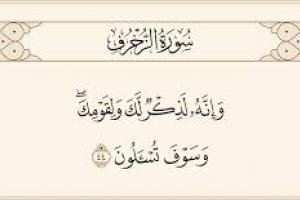 سُورَةُ الزُّخْرُفِ
وَإِنَّهُۥ لَذِكْرٌ لَّكَ وَلِقَوْمِكَ ۖ
وَسَوْفَ تُسْـَٔلُونَ ٤٤